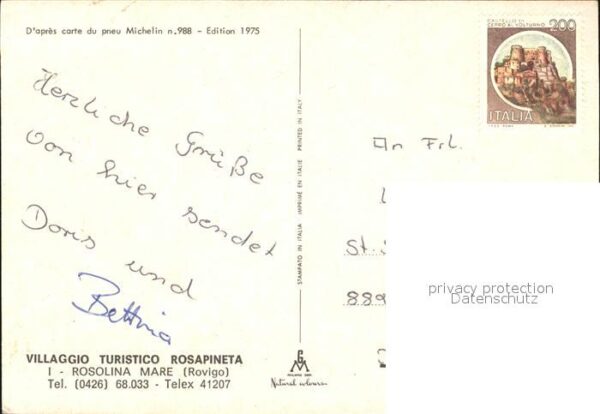 D'après carte du pneu Michelin n.988 - Edition 1975
CASTELLO DI
CERRO AL VOLTURNO
200
ITALIA
Herzliche Grüße
von hier sendet
Doris und
Bettina
STAMPATO IN ITALIA IMPRIMÉ EN ITALIE PRINTED IN ITALY
An Frl.
St.
889
privacy protection
Datenschutz
VILLAGGIO TURISTICO ROSAPINETA
I - ROSOLINA MARE (Rovigo)
Tel. (0426) 68.033 - Telex 41207
Natural colours